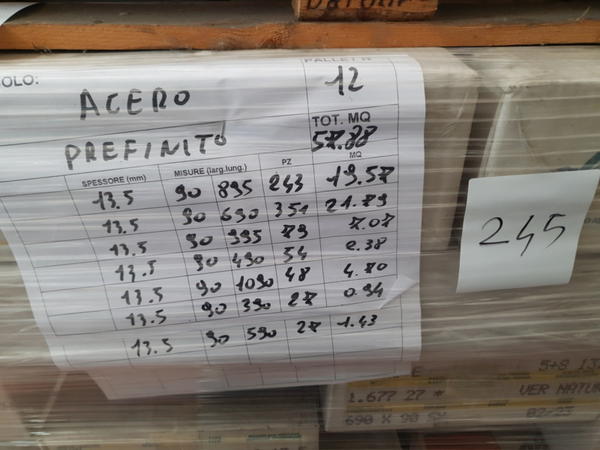 OLO:
PALLET N
ACERO 12
PREFINITO
TOT. MQ
57.88
SPESSORE (mm) MISURE (larg.lung.) PZ MQ
13.5 90 895 243 19.57
13.5 90 690 351 21.79
13.5 90 995 79 7.07
13.5 90 490 54 2.38
13.5 90 1090 48 4.70
13.5 90 390 27 0.94
13.5 90 590 27 1.43
245
1.677 27 *
VER NATU
690 X 90
02/23